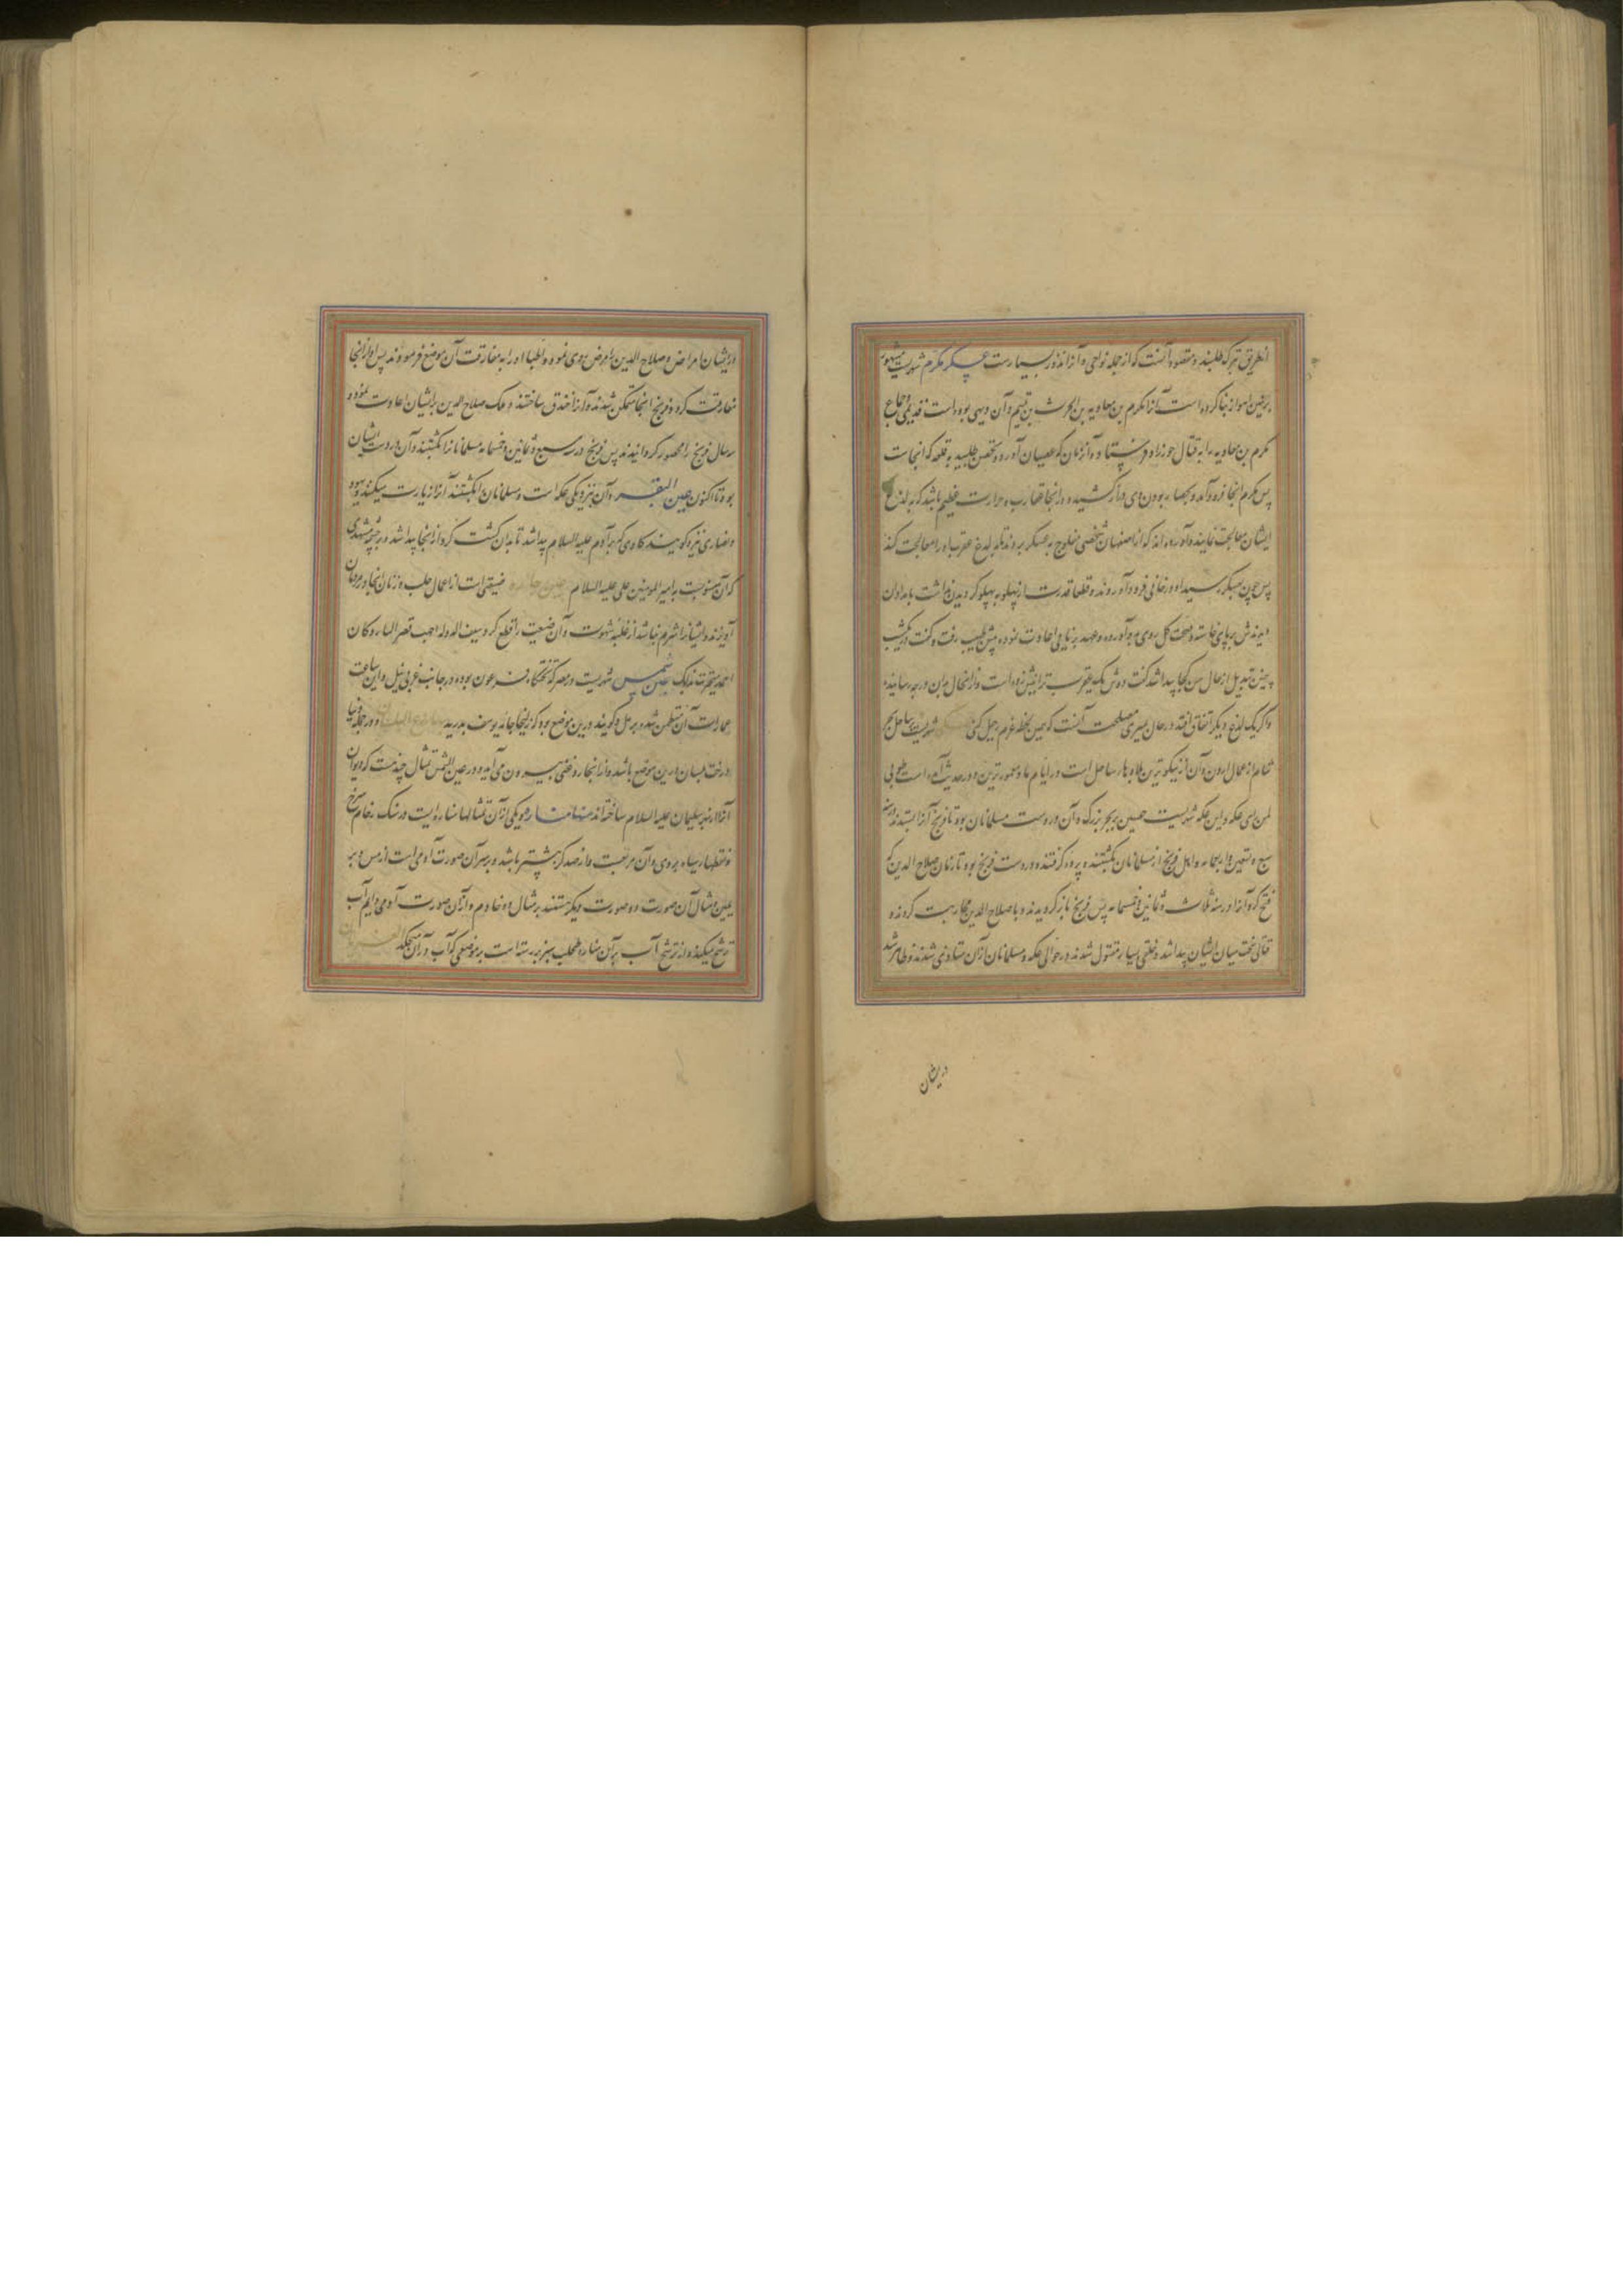 از طریق تبرک طلبند و مقصود آنست که از جمله نواحی و آنرا نذور بسیارست عسکر مکرم شهریست مشهور
بزمین اهواز بنا کرده است آنرا مکرم بن معاویه بن الحرث بن تمیم و آن دیهی بوده است قدیمی حجاج
مکرم بن معاویه را به قتال خورزاد فرستاد و آنزمان که عصیان آورده و تحصن طلبید به قلعه که انجاست
پس مکرم انجا فرود آمد و بحصار بودن وی دراز کشید و در انجا عقارب جراره عظیم باشد که به لدغ
ایشان معالجت نمایند و آورده‌اند که از اصفهان شخصی مفلوج به عسکر بردند تا به لدغ عقرب او را معالجت کنند
پس چون بعسکر رسید او در خانی فرود آوردند و قطعا قدرت از پهلو به پهلو گردیدن نداشت بامدادان
دیدندش بر پای خاسته و صحت کل روی بدو آورده و جهد بر پای اعادت نموده پیش طبیب رفت و گفت در یکشب
چنین تبدیل از حال من کجا پیدا شد گفت دوش یک عقرب ترا نیش زده است و از انحال بدین درجه رسانیده
و اگر یک لدغ دیگر اتفاق افتد در حال میری مصلحت آنست که همین لحظه عزم رحیل کنی شهریست بر ساحل بحر
شام از عمال اردن و آن از نیکوترین بلاد هار ساحل است در ایام ما و معمورترین و در حدیث آمده است طوبی
لمن رای عکه و این عکه شهریست حصین بر بحر بزرگ و آن در دست مسلمانان بود تا فرنج آنرا ابستدند در سنه
سبع و تسعین و اربعمایه و اهل فرنج از مسلمانان بکشتند و برده گرفتند و در دست فرنج بود تا زمان صلاح الدین که
فتح کرد آنرا در سنه ثلاث و ثمانین و خمسمایه پس فرنج باز گردیدند و با صلاح الدین محاربت کردند و
قتالی سخت میان ایشان پیدا شد و خلقی بسیار مقتول شدند در حوالی عکه و مسلمانان ازان متأذی شدند و ظاهر شد
در ایشان
در ایشان امراض و صلاح الدین را مرض روی نمود و اطبا او را به مفارقت آن موضع فرمودند پس او از انجا
مفارقت کرد و فرنج انجا متمکن شدند و آنرا خندق ساختند و ملک صلاح الدین بر ایشان اعادت نمود و
رسال فرنج را محصور گردانیدند پس فرنج در سنه سبع و ثمانین و خمسمایه مسلمانانرا بکشتند و آن در دست ایشان
بود تا اکنون عین البقر و آن بنزدیکی عکه است و مسلمانان را بکشتند آنرا زیارت میکنند و یهود
و نصاری نیز و گویند گاوی که بر آدم علیه السلام پیدا شد تا بدان کشت کرد از انجا پیدا شد و بر چشمه مشهدی
که آن منسوبست به امیر المومنین علی علیه السلام عین جاره ضیعتی است از اعمال حلب و زنان انجا در مردمان
آویزند و ایشانرا شرم نباشد از غلبه شهوت و آن ضیعت را قطع کرد سیف الدوله اجب قصر البنار و کان
احمد یتجرت بذلک عین شمس شهریست در مصر که تختگاه فرعون بوده در جانب غربی نیل و این ساعت
عمارات آن منطمس شده بر مل و گویند درین موضع بود که زلیخا جامه یوسف بدرید و در جمله دنیا
درخت بلسان درین موضع باشد و از انجا روغنی بیرون می‌آید و در عین الشمس تمثال چند هست که دیوان
آنرا از بهر سلیمان علیه السلام ساخته‌اند منها مناره و یکی از آن تمثالها مناره‌ایست در سنگ رخام سرخ
و نقطهاء سیاه بروی و آن مربعست و از صد گز بیشتر باشد و بر سر آن صورت آدمی است از مس و بر
یمین و شمال آن صورت دو صورت دیگر هستند بر مثال دو خادم و از آن صورت آدمی دایم آب
ترشح میکند و از ترشح آب بر آن مناره طحلب سبز بر رسته است بر موضعی که آب در آن میچکد